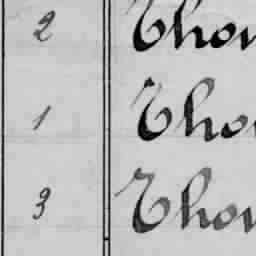 2 Thom
1 Thom
3 Thom